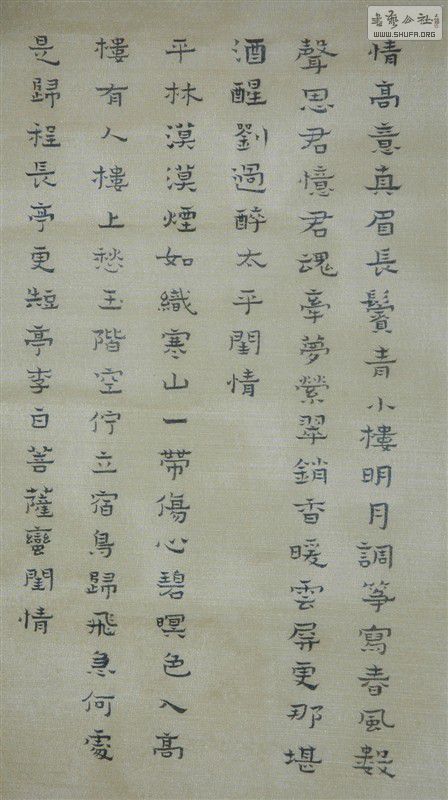 書法公社
WWW.SHUFA.ORG
情高意真眉長鬢青小樓明月調箏寫春風數
聲思君憶君魂牽夢縈翠銷香暖雲屏更那堪
酒醒劉過醉太平閨情
平林漠漠煙如織寒山一帶傷心碧暝色入高
樓有人樓上愁玉階空佇立宿鳥歸飛急何處
是歸程長亭更短亭李白菩薩蠻閨情